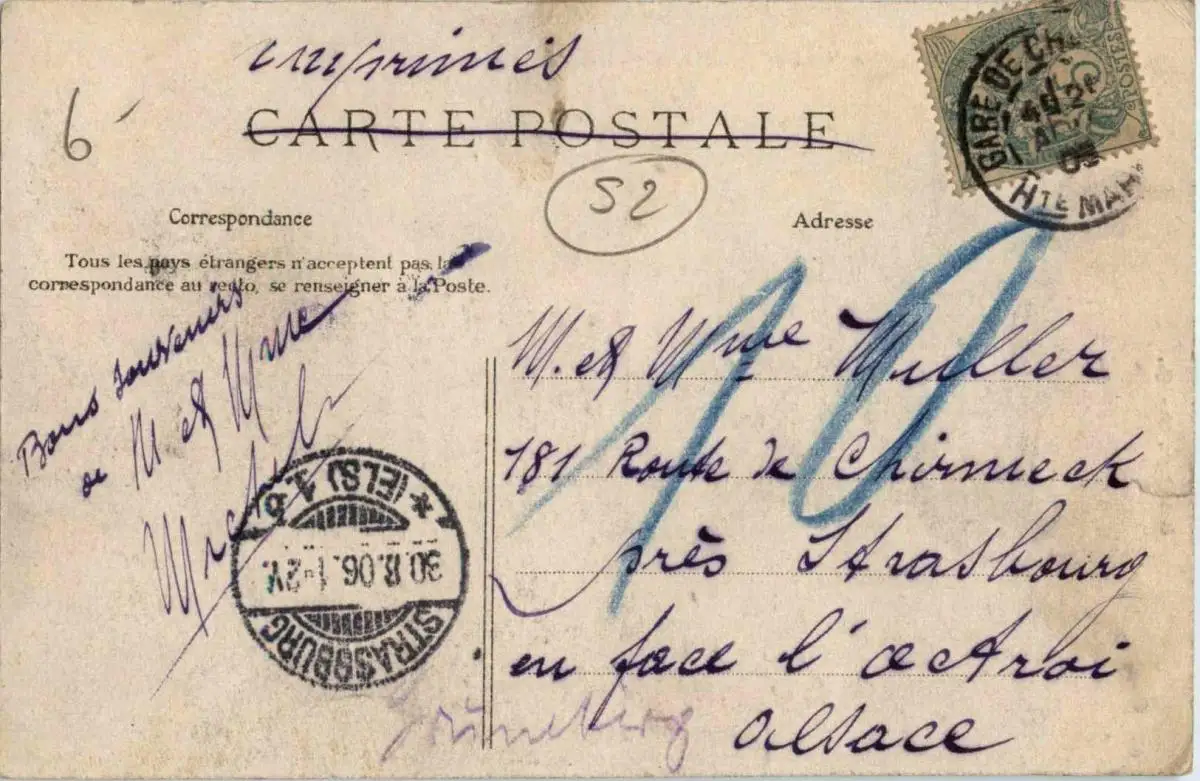 imprimés
CARTE POSTALE
6
52
Correspondance
Adresse
Tous les pays étrangers n'acceptent pas la
correspondance au recto, se renseigner à la Poste.
GARE DE CH
HTE MAR
POSTES
5
Bons souvenirs
de M et Mme
10
M. et Mme Muller
181 Route de Chirmeck
près Strasbourg
en face l'octroi
alsace
Grüneberg
STRASSBURG
30.8.06.1-2V.
* (ELS.) 1. b